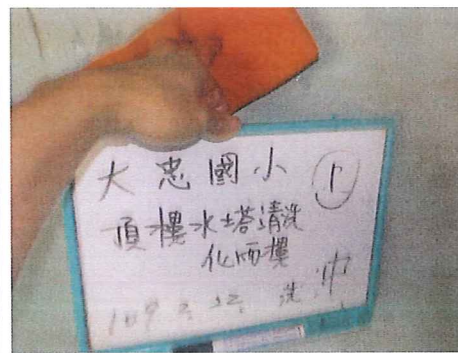 大忠國小 上
頂樓水塔清洗
化面樓
109.2.22. 洗中